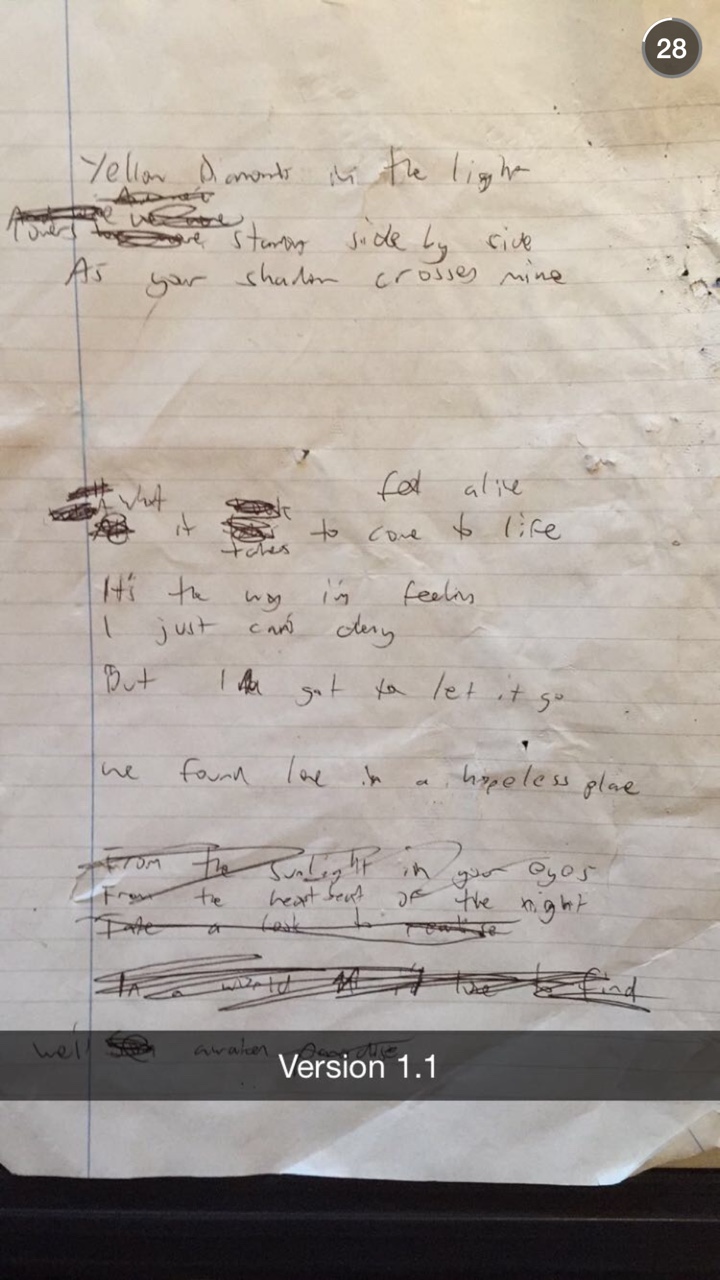 28
Yellow Diamonds in the light
standing side by side
As your shadow crosses mine
feel alive
what
it to come to life
takes
It's the way i'm feelin
I just can't deny
But I got to let it go
we found love in a hopeless place
From the sunlight in your eyes
From the heartbeat of the night
Take a look to realise
In a world I'd love to find
we'll awaken
Version 1.1